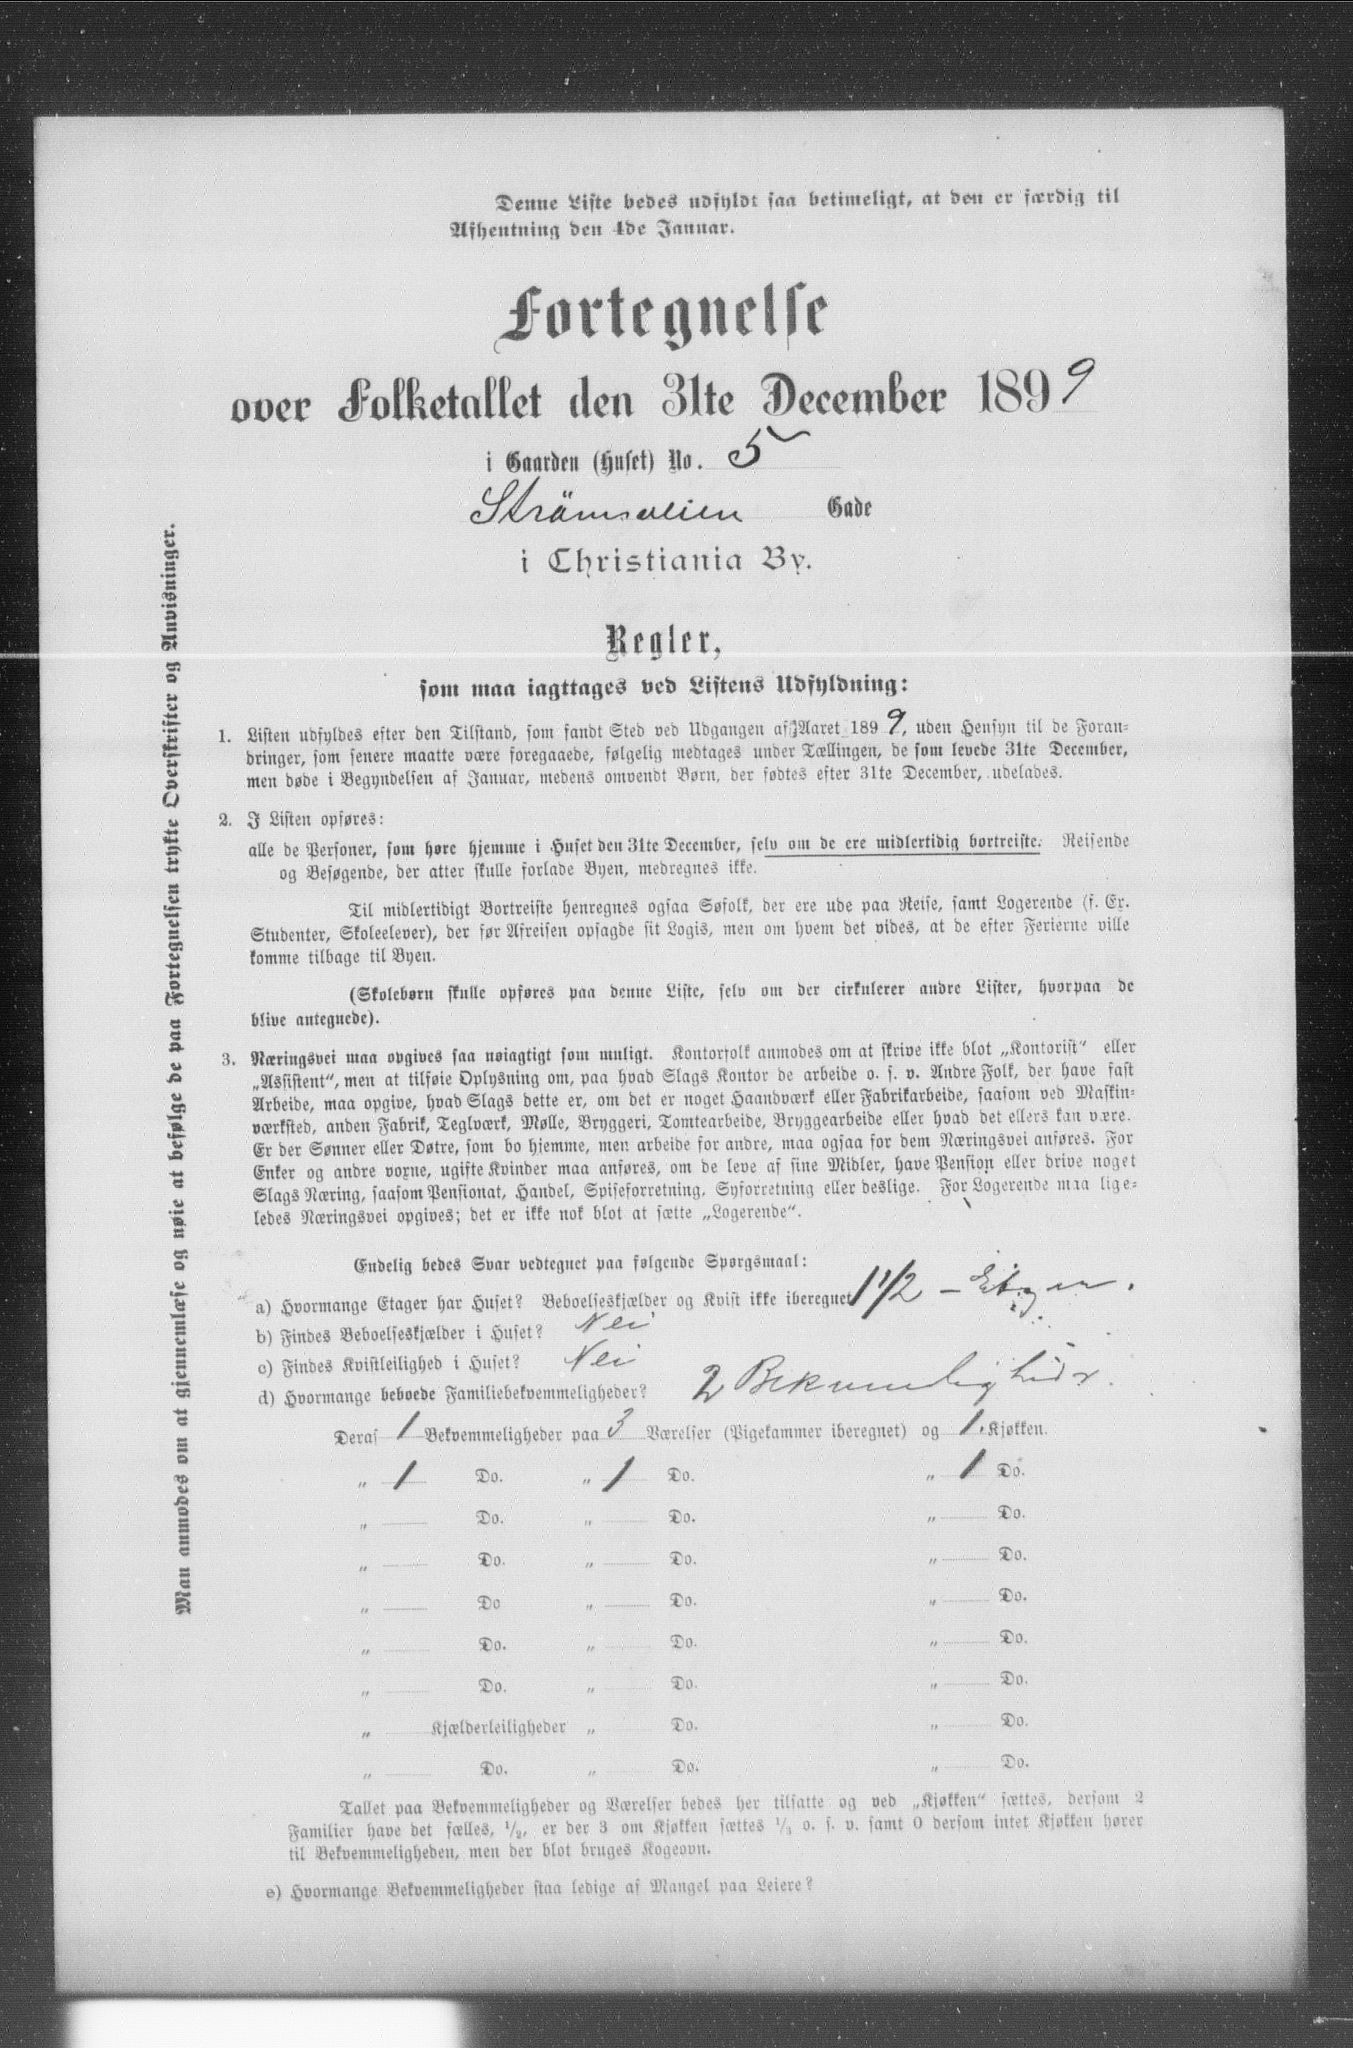 Denne Liste bedes udfyldt saa betimeligt, at den er færdig til
Afhentning den 4de Januar.
Fortegnelse
over Folketallet den 31te December 1899
i Gaarden (Huset) No. 5
Strömsveien Gade
i Christiania By.
Regler,
som maa iagttages ved Listens Udfyldning:
1. Listen udfyldes efter den Tilstand, som fandt Sted ved Udgangen af Aaret 1899, uden Hensyn til de Foran-
dringer, som senere maatte være foregaaede, følgelig medtages under Tællingen, de som levede 31te December,
men døde i Begyndelsen af Januar, medens omvendt Børn, der fødtes efter 31te December, udelades.
2. I Listen opføres:
alle de Personer, som høre hjemme i Huset den 31te December, selv om de ere midlertidig bortreiste. Reisende
og Besøgende, der atter skulle forlade Byen, medregnes ikke.
Til midlertidigt Bortreiste henregnes ogsaa Søfolk, der ere ude paa Reise, samt Logerende (f. Ex.
Studenter, Skoleelever), der før Afreisen opsagde sit Logis, men om hvem det vides, at de efter Ferierne ville
komme tilbage til Byen.
(Skolebørn skulle opføres paa denne Liste, selv om der cirkulerer andre Lister, hvorpaa de
blive antegnede).
3. Næringsvei maa opgives saa nøiagtigt som muligt. Kontorfolk anmodes om at skrive ikke blot „Kontorist" eller
„Assistent", men at tilføie Oplysning om, paa hvad Slags Kontor de arbeide o. s. v. Andre Folk, der have fast
Arbeide, maa opgive, hvad Slags dette er, om det er noget Haandværk eller Fabrikarbeide, saasom ved Maskin-
værksted, anden Fabrik, Teglværk, Mølle, Bryggeri, Tomtearbeide, Bryggearbeide eller hvad det ellers kan være.
Er der Sønner eller Døtre, som bo hjemme, men arbeide for andre, maa ogsaa for dem Næringsvei anføres. For
Enker og andre voxne, ugifte Kvinder maa anføres, om de leve af sine Midler, have Pension eller drive noget
Slags Næring, saasom Pensionat, Handel, Spiseforretning, Syforretning eller deslige. For Logerende maa lige-
ledes Næringsvei opgives; det er ikke nok blot at sætte „Logerende".
Endelig bedes Svar vedtegnet paa følgende Spørgsmaal:
a) Hvormange Etager har Huset? Beboelseskjælder og Kvist ikke iberegnet 1 1/2 - Etager.
b) Findes Beboelseskjælder i Huset? Nei
c) Findes Kvistleilighed i Huset? Nei
d) Hvormange beboede Familiebekvemmeligheder? 2 
Deraf 1 Bekvemmeligheder paa 3 Værelser (Pigekammer iberegnet) og 1. Kjøkken.
„ 1 Do. „ 1 Do. „ 1 Do.
„ Do. „ Do. „ Do.
„ Do. „ Do. „ Do.
„ Do „ Do. „ Do.
„ Do. „ Do. „ Do.
„ Do. „ Do. „ Do.
„ Kjælderleiligheder „ Do. „ Do.
„ Do. „ Do. „ Do.
Tallet paa Bekvemmeligheder og Værelser bedes her tilsatte og ved „Kjøkken" sættes, dersom 2
Familier have det fælles, 1/2, er der 3 om Kjøkken sættes 1/3 o. s. v. samt 0 dersom intet Kjøkken hører
til Bekvemmeligheden, men der blot bruges Kogeovn.
e) Hvormange Bekvemmeligheder staa ledige af Mangel paa Leiere?
Man anmodes om at gjennemlæse og nøie at befølge de paa Fortegnelsen trykte Overskrifter og Anvisninger.